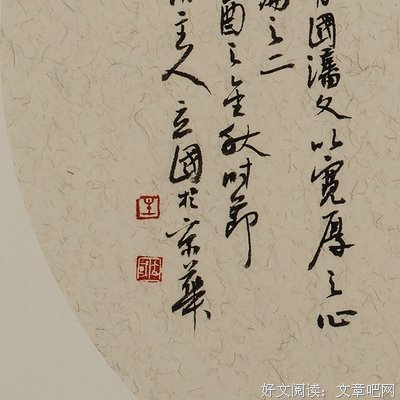 國藩文以寬厚之心
之二
酉之金秋時節
主人立國於京華
好文阅读：文章吧网